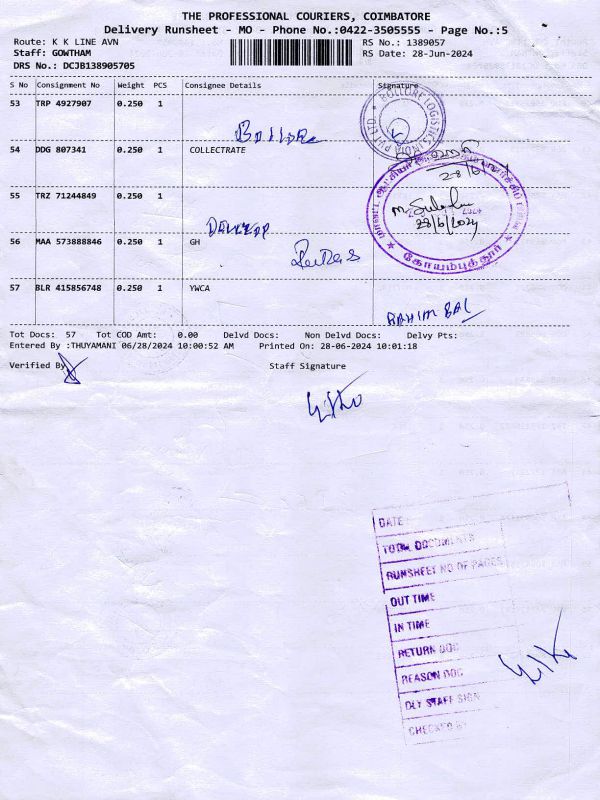 THE PROFESSIONAL COURIERS, COIMBATORE
Delivery Runsheet - MO - Phone No.:0422-3505555 - Page No.:5
Route: K K LINE AVN
RS No.: 1389057
Staff: GOWTHAM
RS Date: 28-Jun-2024
DRS No.: DCJB138905705
S No Consignment No Weight PCS Consignee Details Signature
53 TRP 4927907 0.250 1
BOLLORE LOGISTICS INDIA PVT LTD
54 DDG 807341 0.250 1 COLLECTRATE
28/6/
55 TRZ 71244849 0.250 1
28/6/2024
கோயம்புத்தூர்
56 MAA 573888846 0.250 1 GH
57 BLR 415856748 0.250 1 YWCA
Tot Docs: 57 Tot COD Amt: 0.00 Delvd Docs: Non Delvd Docs: Delvy Pts:
Entered By :THUYAMANI 06/28/2024 10:00:52 AM Printed On: 28-06-2024 10:01:18
Verified By
Staff Signature
DATE
TOTAL DOCUMENTS
RUNSHEET NO OF PAGES
OUT TIME
IN TIME
RETURN DOC
REASON DOC
DLY STAFF SIGN
CHECKED BY